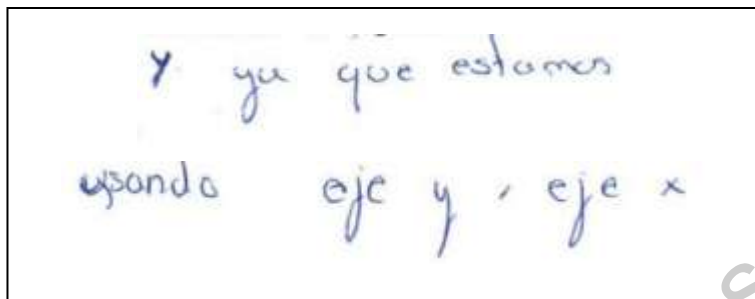 Y ya que estamos
usando eje y, eje x